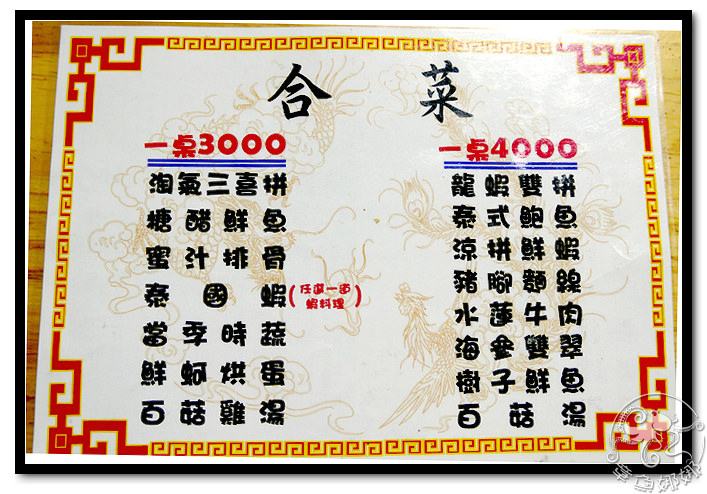 合菜
一桌3000
淘氣三喜拼
糖醋鮮魚
蜜汁排骨
泰國蝦(任選一道蝦料理)
當季時蔬
鮮蚵烘蛋
百菇雞湯
一桌4000
龍蝦雙拼
泰式鮑魚
涼拼鮮蝦
豬腳麵線
水蓮牛肉
海參雙翠
樹子鮮魚
百菇湯